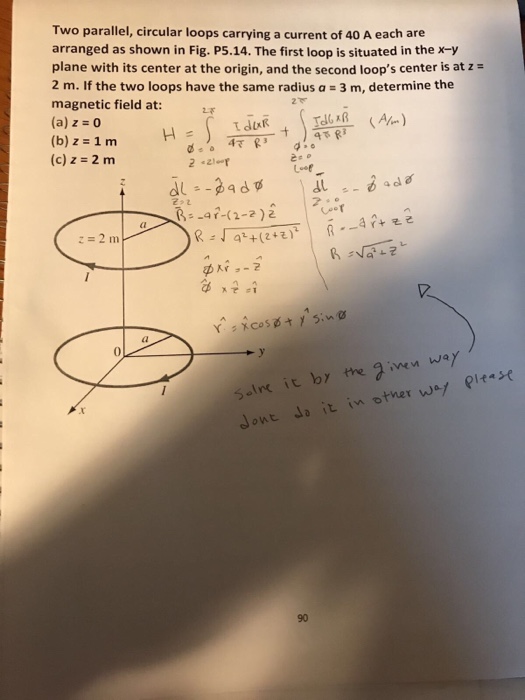 Two parallel, circular loops carrying a current of 40 A each are
arranged as shown in Fig. P5.14. The first loop is situated in the x–y
plane with its center at the origin, and the second loop's center is at z =
2 m. If the two loops have the same radius a = 3 m, determine the
magnetic field at:
(a) z = 0
(b) z = 1 m
(c) z = 2 m
H = ∫ + ∫ (A/m)
2π
φ=0
z=2 loop
I dl x R̄
4π R³
2π
φ=0
z=0
loop
I dl x R̄
4π R³
dl = -φ̂ a dφ
z=2
R̄ = -a r̂ - (2-z) ẑ
R = √a²+(2+z)²
φ̂ x r̂ = -ẑ
φ̂ x ẑ = r̂
dl = -φ̂ a dφ
z=0
loop
R̄ = -a r̂ + z ẑ
R = √a²+z²
r̂ = x̂ cosφ + ŷ sinφ
z
a
z = 2 m
I
a
0
y
I
x
solve it by the given way
dont do it in other way please
90